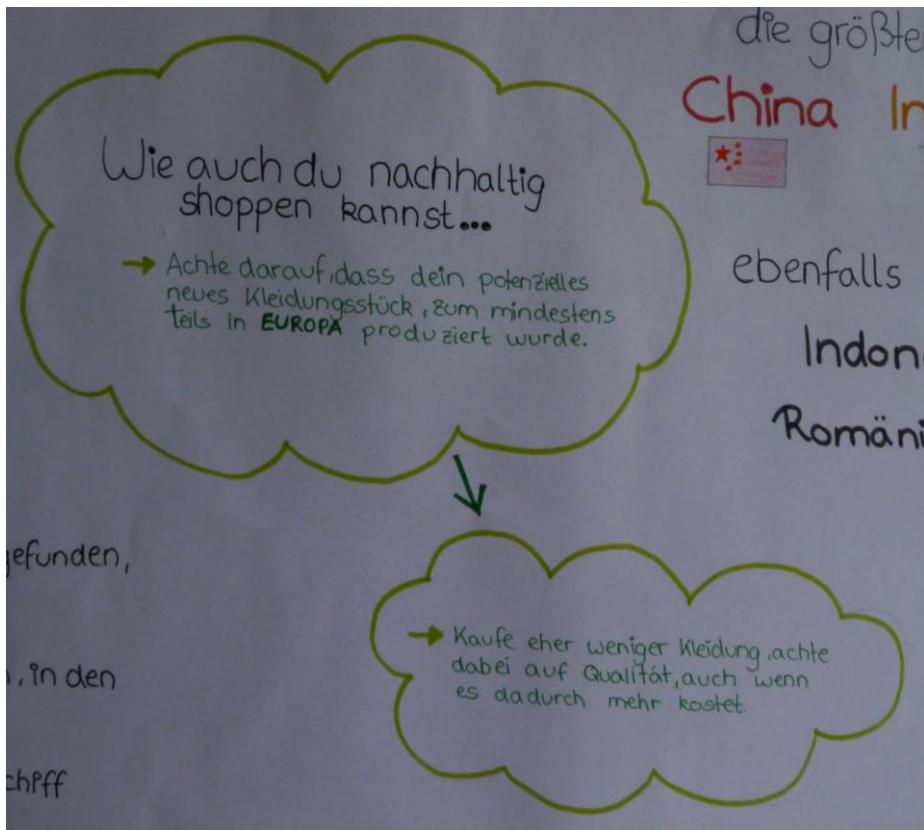 die größten
China
Wie auch du nachhaltig
shoppen kannst...
→ Achte darauf, dass dein potenzielles
neues Kleidungsstück, zum mindestens
teils in EUROPA produziert wurde.
ebenfalls
→ Kaufe eher weniger Kleidung, achte
dabei auf Qualität, auch wenn
es dadurch mehr kostet.
gefunden,
, in den